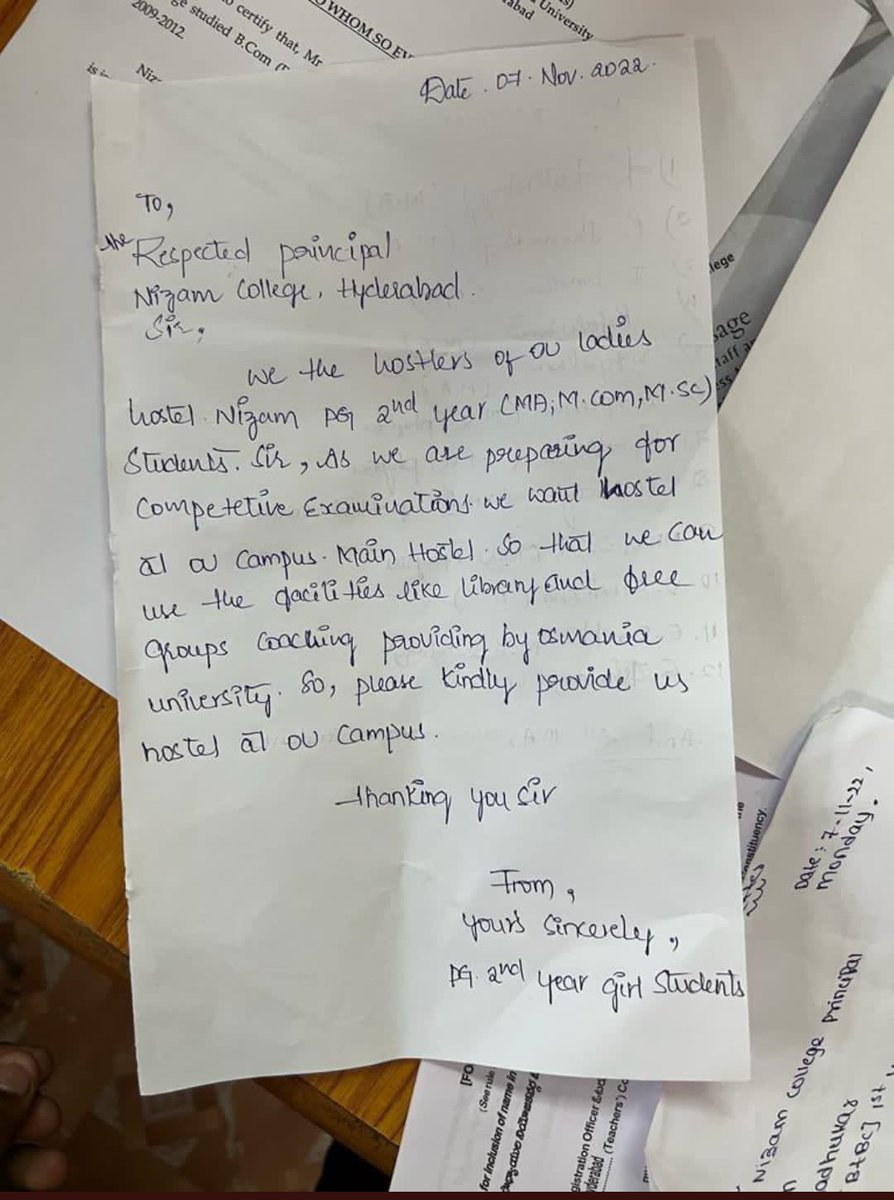 TO WHOM SO EV
University
abad
o certify that, Mr
ge studied B.Com
2009-2012
Niz
is
Date . 07 . Nov. 2022 .
To,
the Respected principal
Nizam College, Hyderabad .
Sir,
we the hostlers of OU ladies
hostel. Nizam PG 2nd year (MA, M.COM, M.SC)
Students. Sir, As we are preparing for
Competetive Examinations. we want hostel
at OU Campus. Main Hostel. So that we can
use the facilities like library and free
groups Coaching providing by osmania
university. So, please kindly provide us
hostel at OU Campus.
Thanking you Sir
From,
yours Sincerely,
PG. 2nd year girl Students
lege
sage
taff a
onstituency
Date: 7-11-22,
Monday.
Nizam College Principal
[FO
(See rule
for Inclusion of name in
gistration Officer &
derabad (Teachers') Co